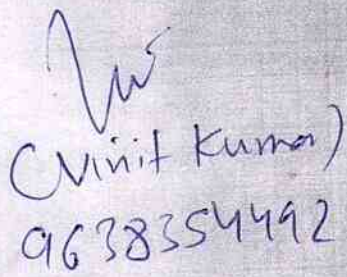 (Vinit Kumar)
9638354492